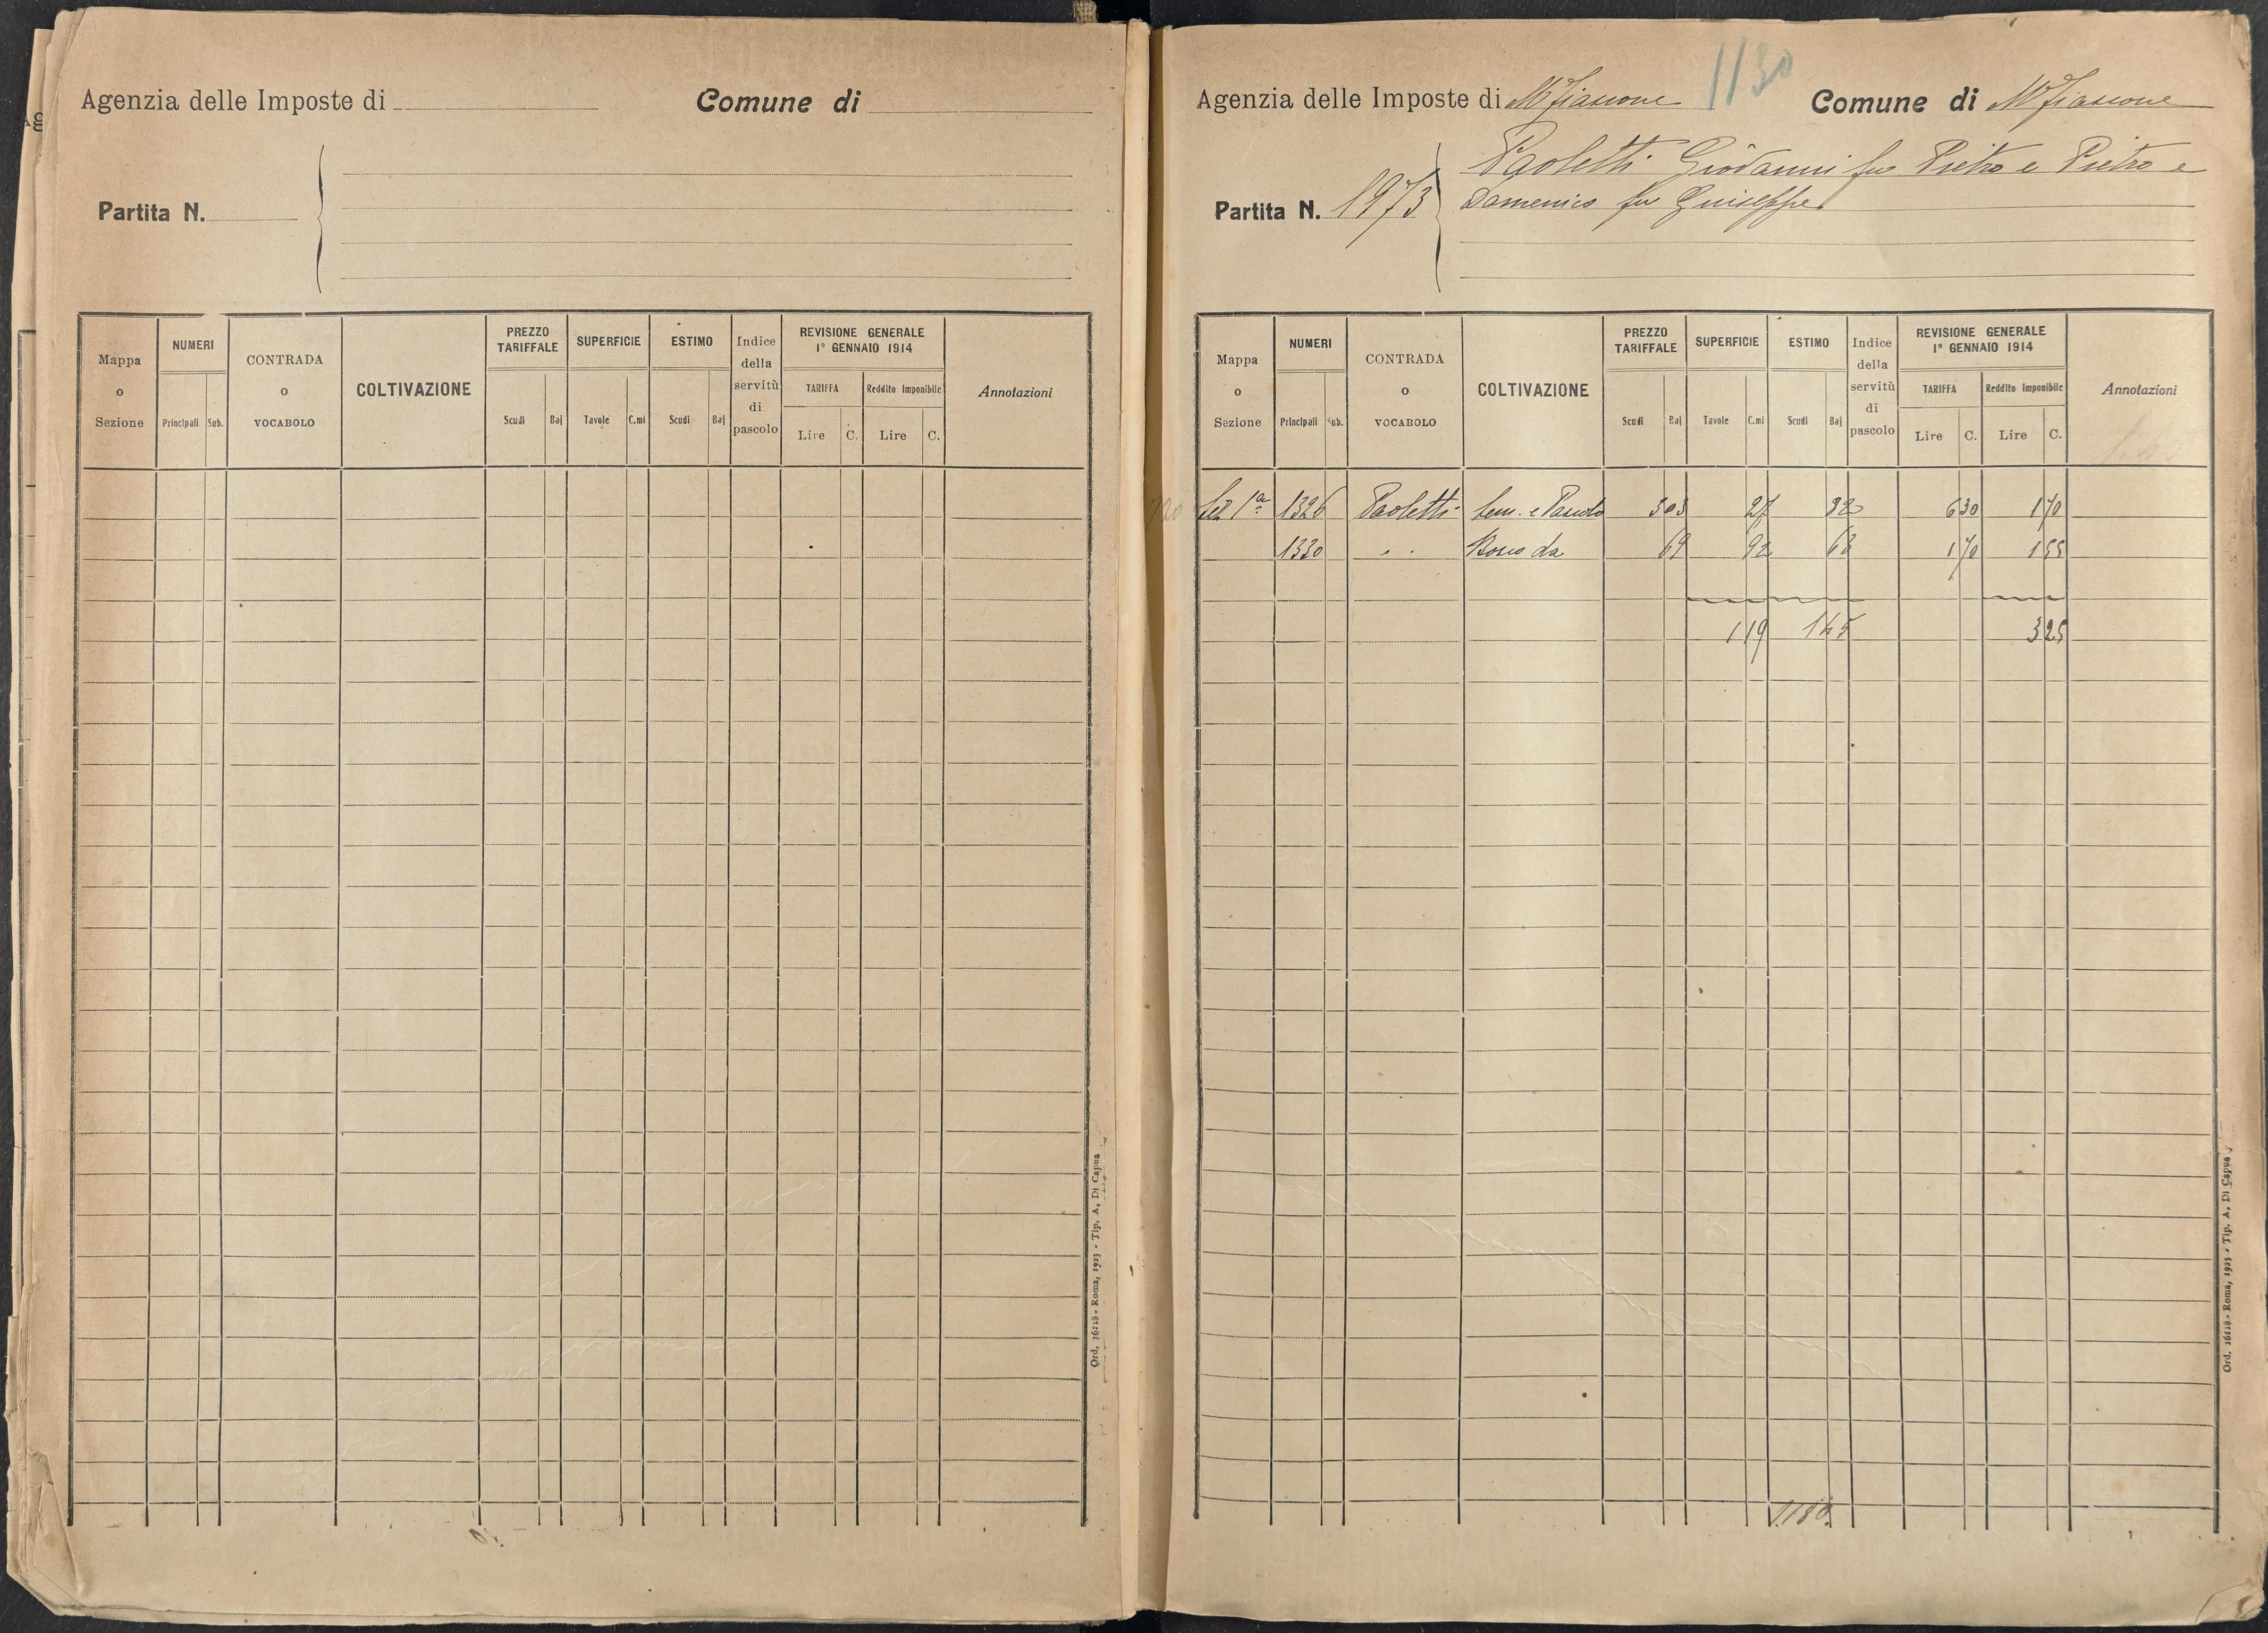 Agenzia delle Imposte di Comune di
Partita N.
Mappa o Sezione NUMERI Principali Sub. CONTRADA o VOCABOLO COLTIVAZIONE PREZZO TARIFFALE Scudi Baj SUPERFICIE Tavole C.mi ESTIMO Scudi Baj Indice della servitù di pascolo REVISIONE GENERALE 1° GENNAIO 1914 TARIFFA Lire C. Reddito Imponibile Lire C. Annotazioni
Ord. 16118 - Roma, 1923 - Tip. A. Di Capua
1130
Agenzia delle Imposte di Mfiascone Comune di Mfiascone
Partita N. 1973
Paoletti Giovanni fu Pietro e Pietro e
Domenico fu Giuseppe
Mappa o Sezione NUMERI Principali Sub. CONTRADA o VOCABOLO COLTIVAZIONE PREZZO TARIFFALE Scudi Baj SUPERFICIE Tavole C.mi ESTIMO Scudi Baj Indice della servitù di pascolo REVISIONE GENERALE 1° GENNAIO 1914 TARIFFA Lire C. Reddito Imponibile Lire C. Annotazioni
Sez 1ª 1326 Paoletti Sem. e Pascolo 303 27 82 630 170
1330 " " Bosco da 69 92 63 170 155
119 145 325
1180
Ord. 16118 - Roma, 1923 - Tip. A. Di Capua